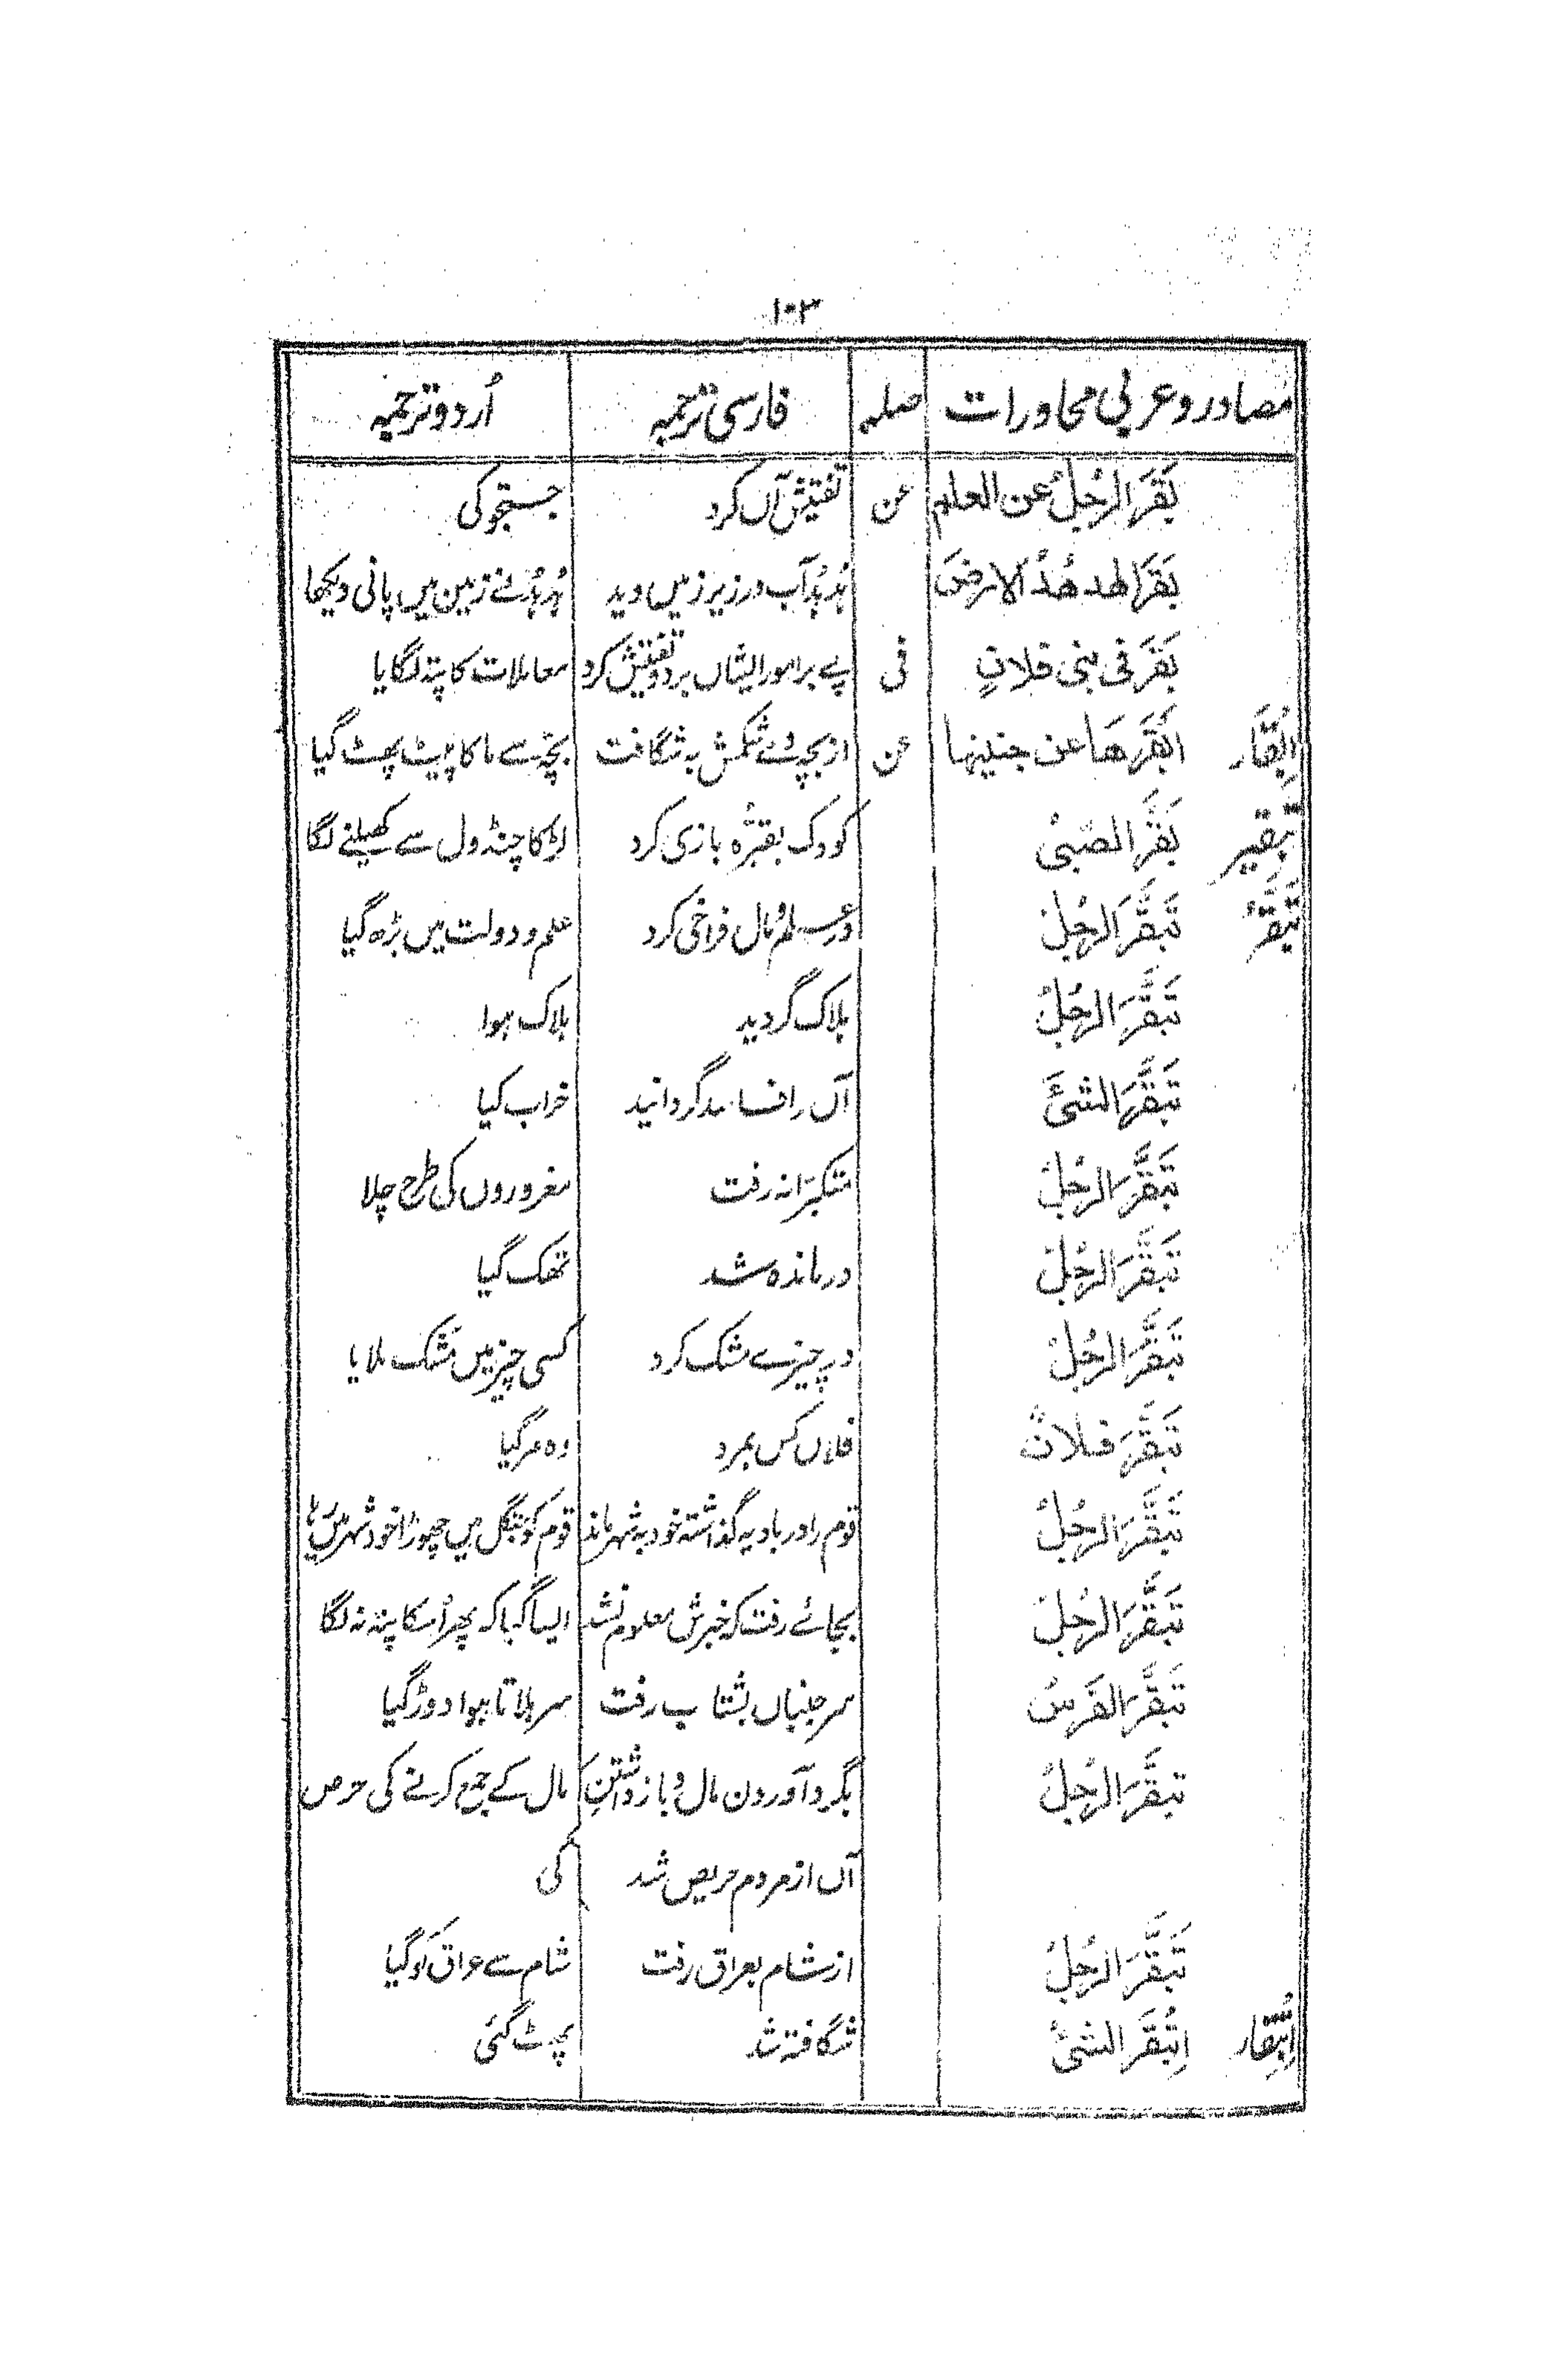 ۱۰۳
مصادر و عربی محاورات صلہ فارسی ترجمہ اُردو ترجمہ
بَقَرَ الرَّجُلُ عن العلم عن تفتیش آں کرد جستجو کی
بَقَرَ الهدهُدُ الارضَ ہُدہُد آب در زیر زمیں دید ہُدہُد نے زمین میں پانی دیکھا
بَقَرَ فی بنی فلانٍ فی پے بر امور ایشاں برد و تفتیش کرد معاملات کا پتہ لگایا
اِبْقَار ابْقَرَهَا عن جنینها عن از بچہ وے شکمش بہ شگافت بچّہ سے ما کا پیٹ پھٹ گیا
تَبقیر بَقَّرَ الصَّبیُّ کودک بقیّرہ بازی کرد لڑکا چنڈول سے کھیلنے لگا
تَبَقُّر تَبَقَّرَ الرَّجُلُ در علم و مال فراخی کرد علم و دولت میں بڑھ گیا
تَبَقَّرَ الرَّجُلُ ہلاک گردید ہلاک ہوا
تَبَقَّرَ الشیَٔ آں را فاسد گردانید خراب کیا
تَبَقَّرَ الرَّجُلُ متکبّرانہ رفت مغروروں کی طرح چلا
تَبَقَّرَ الرَّجُلُ درماندہ شد تھک گیا
تَبَقَّرَ الرَّجُلُ در چیزے شک کرد کسی چیز میں مُشک ملایا
تَبَقَّرَ فلانٌ فلاں کس بمرد وہ مر گیا
تَبَقَّرَ الرَّجُلُ قوم را در بادیہ گذاشتہ خود بہ شہر ماند قوم کو جنگل میں چھوڑا خود شہر میں رہا
تَبَقَّرَ الرَّجُلُ بجائے رفت کہ خبرش معلوم نشد ایسا گیا کہ پھر اُسکا پتہ نہ لگا
تَبَقَّرَ الفَرَسُ سرجنباں بشتاب رفت سر ہلاتا ہوا دوڑ گیا
تبقَّرَ الرَّجُلُ بگرد آوردن مال و بازداشتنِ مال کے جمع کرنے کی حرص
آں از مردم حریص شد کی
تَبَقَّرَ الرَّجُلُ از شام بعراق رفت شام سے عراق کو گیا
اِبْتِقَار اِبْتَقَرَ الشیُٔ شگافتہ شد پھٹ گئی